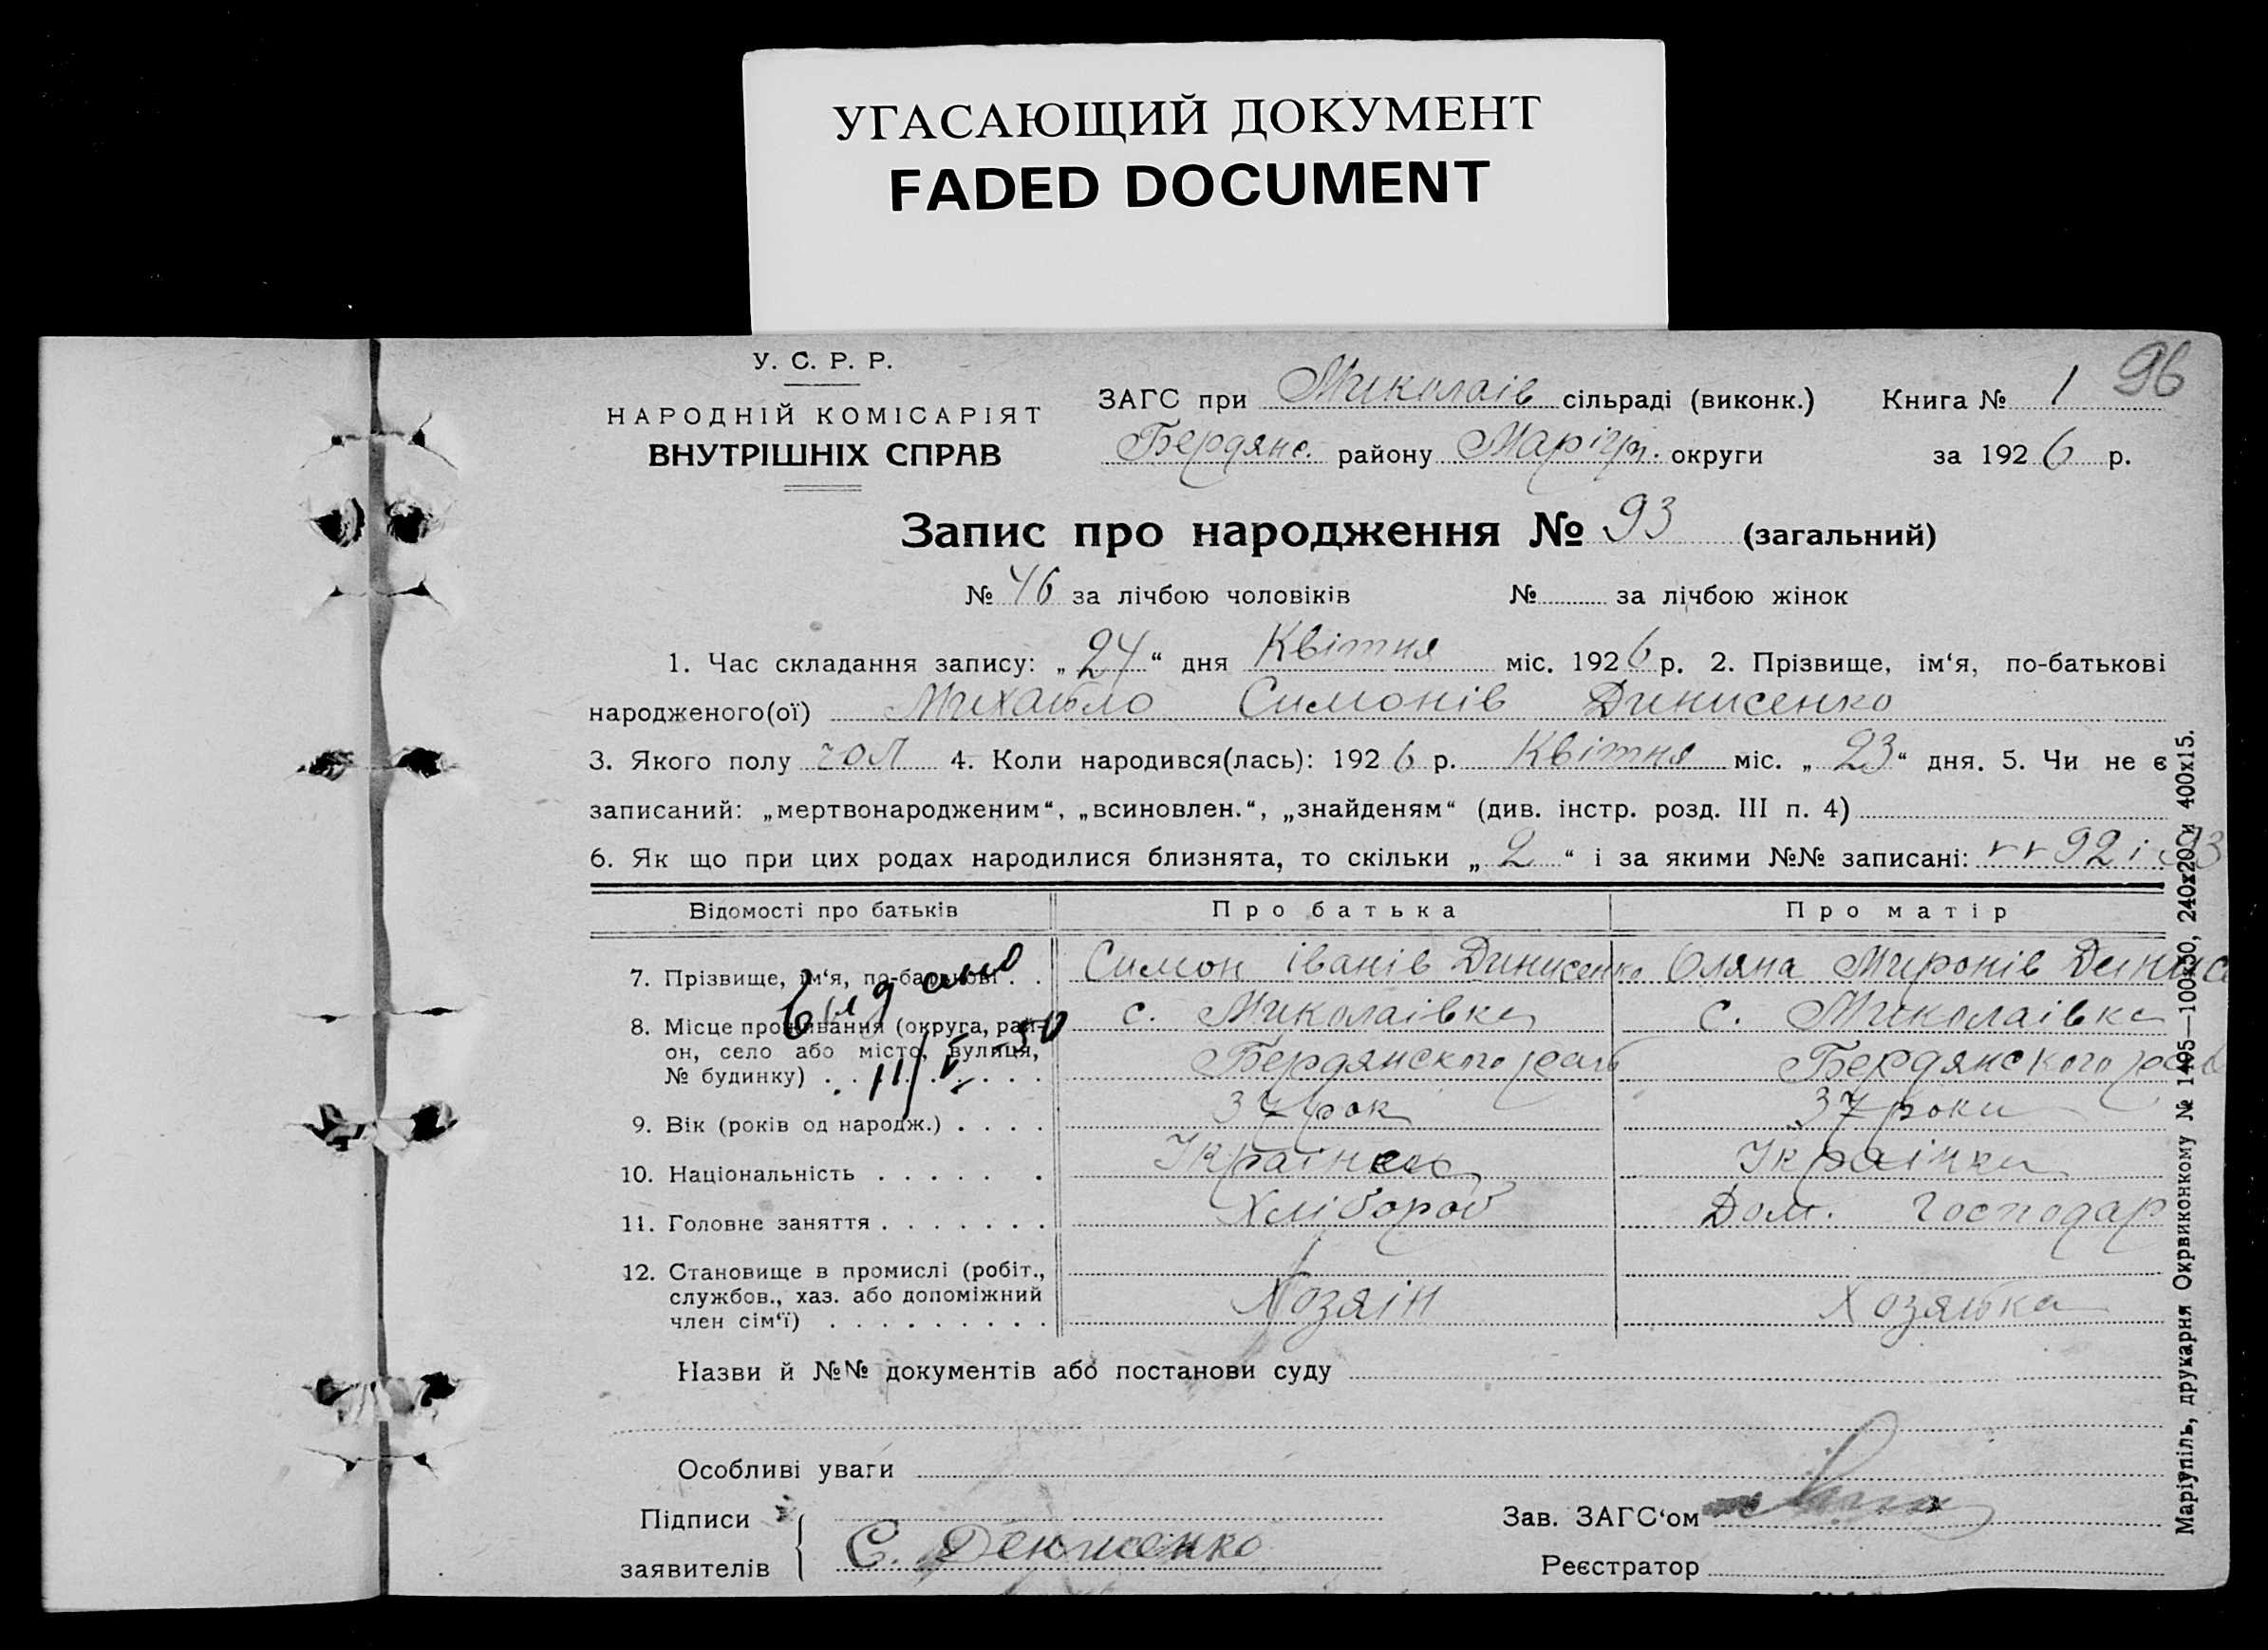 УГАСАЮЩИЙ ДОКУМЕНТ
FADED DOCUMENT
У. С. Р. Р.
НАРОДНІЙ КОМІСАРІЯТ
ВНУТРІШНІХ СПРАВ
ЗАГС при Миколаів сільраді (виконк.) Книга № 1 96
Бердянс. району Маріуп. округи за 1926 р.
Запис про народження № 93 (загальний)
№ 46 за лічбою чоловіків № за лічбою жінок
1. Час складання запису: „24“ дня Квітня міс. 1926 р. 2. Прізвище, ім‘я, по-батькові
народженого(ої) Михайло Симонів Динисенко
3. Якого полу чол 4. Коли народився(лась): 1926 р. Квітня міс. „23“ дня. 5. Чи не є
записаний: „мертвонародженим“, „всиновлен.“, „знайденям“ (див. інстр. розд. III п. 4)
6. Як що при цих родах народилися близнята, то скільки „2“ і за якими №№ записані: 92 і 93
Відомості про батьків Про батька Про матір
7. Прізвище, ім‘я, по-батькові . . Симон іванів Динисенко Оляна Миронів Динисе
видано
8. Місце проживання (округа, рай- с. Миколаівка с. Миколаівка
он, село або місто, вулиця, Бердянского рай Бердянского рай
№ будинку) . . . . . . .
11/V 50
9. Вік (років од народж.) . . . . 37 рок 37 роки
10. Національність . . . . . . Українец Українка
11. Головне заняття . . . . . . . Хлібороб Дом. господар
12. Становище в промислі (робіт.,
службов., хаз. або допоміжний Хозяін Хозяйка
член сім‘ї) . . . . . . . . .
Назви й №№ документів або постанови суду
Особливі уваги
Підписи
заявителів С. Денисенко
Зав. ЗАГС‘ом
Реєстратор
Маріупіль, друкарня Окрвиконкому № 1495—100х50, 240х200 и 400х15.